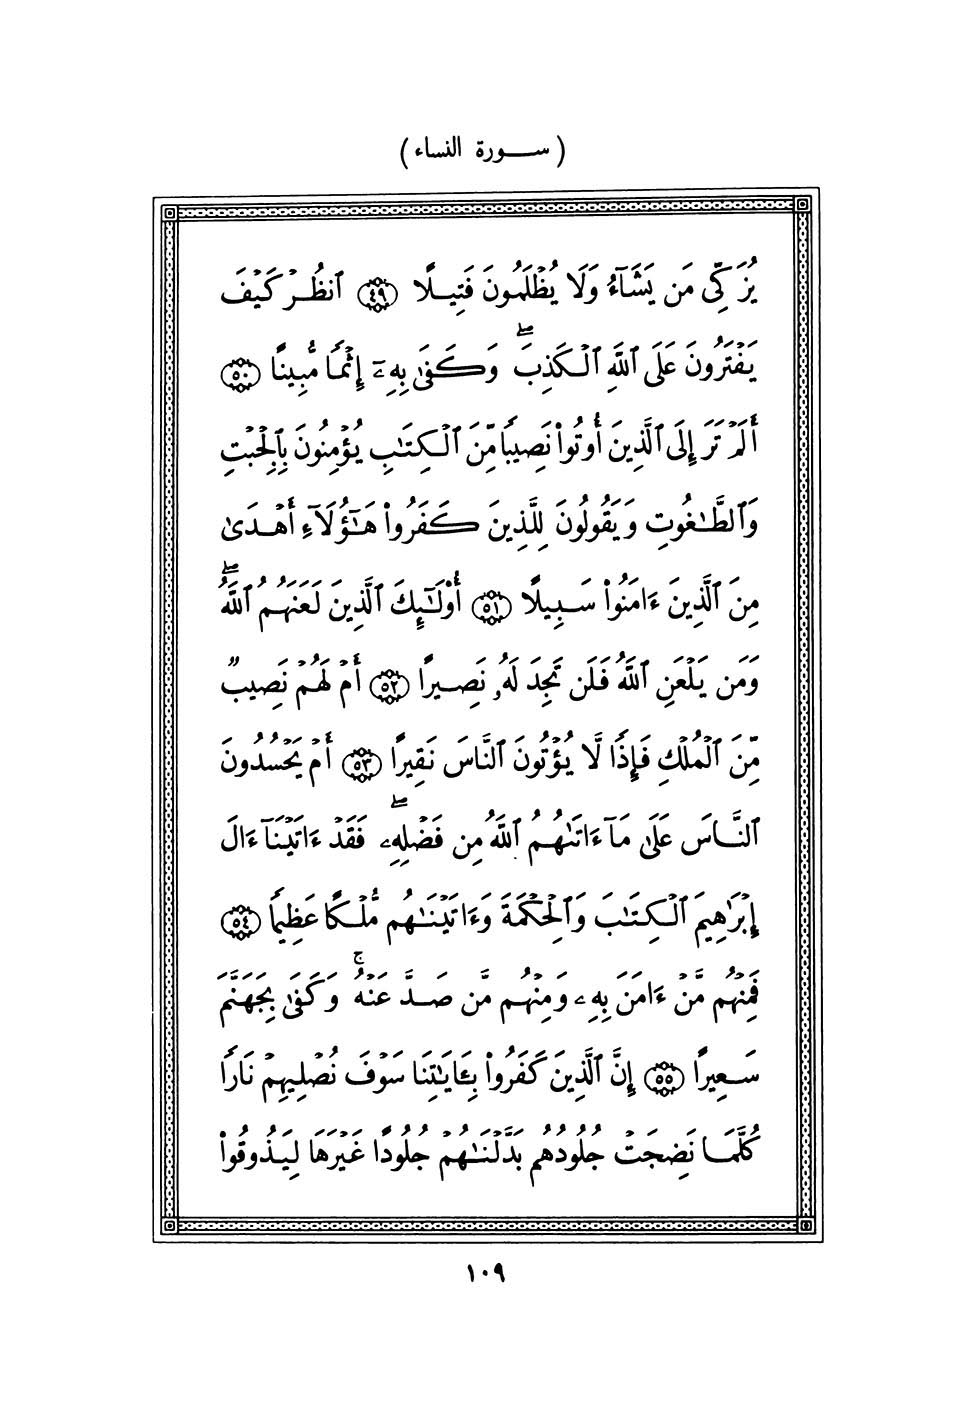 ( ســورة النساء )
يُزَكِّى مَن يَشَآءُ وَلَا يُظْلَمُونَ فَتِيلًا ﴿٤٩﴾ ٱنظُرْ كَيْفَ
يَفْتَرُونَ عَلَى ٱللَّهِ ٱلْكَذِبَ ۖ وَكَفَىٰ بِهِۦٓ إِثْمًا مُّبِينًا ﴿٥٠﴾
أَلَمْ تَرَ إِلَى ٱلَّذِينَ أُوتُوا۟ نَصِيبًا مِّنَ ٱلْكِتَـٰبِ يُؤْمِنُونَ بِٱلْجِبْتِ
وَٱلطَّـٰغُوتِ وَيَقُولُونَ لِلَّذِينَ كَفَرُوا۟ هَـٰٓؤُلَآءِ أَهْدَىٰ
مِنَ ٱلَّذِينَ ءَامَنُوا۟ سَبِيلًا ﴿٥١﴾ أُو۟لَـٰٓئِكَ ٱلَّذِينَ لَعَنَهُمُ ٱللَّهُ ۖ
وَمَن يَلْعَنِ ٱللَّهُ فَلَن تَجِدَ لَهُۥ نَصِيرًا ﴿٥٢﴾ أَمْ لَهُمْ نَصِيبٌ
مِّنَ ٱلْمُلْكِ فَإِذًا لَّا يُؤْتُونَ ٱلنَّاسَ نَقِيرًا ﴿٥٣﴾ أَمْ يَحْسُدُونَ
ٱلنَّاسَ عَلَىٰ مَآ ءَاتَىٰهُمُ ٱللَّهُ مِن فَضْلِهِۦ ۖ فَقَدْ ءَاتَيْنَآ ءَالَ
إِبْرَٰهِيمَ ٱلْكِتَـٰبَ وَٱلْحِكْمَةَ وَءَاتَيْنَـٰهُم مُّلْكًا عَظِيمًا ﴿٥٤﴾
فَمِنْهُم مَّنْ ءَامَنَ بِهِۦ وَمِنْهُم مَّن صَدَّ عَنْهُ ۚ وَكَفَىٰ بِجَهَنَّمَ
سَعِيرًا ﴿٥٥﴾ إِنَّ ٱلَّذِينَ كَفَرُوا۟ بِـَٔايَـٰتِنَا سَوْفَ نُصْلِيهِمْ نَارًا
كُلَّمَا نَضِجَتْ جُلُودُهُم بَدَّلْنَـٰهُمْ جُلُودًا غَيْرَهَا لِيَذُوقُوا۟
١٠٩